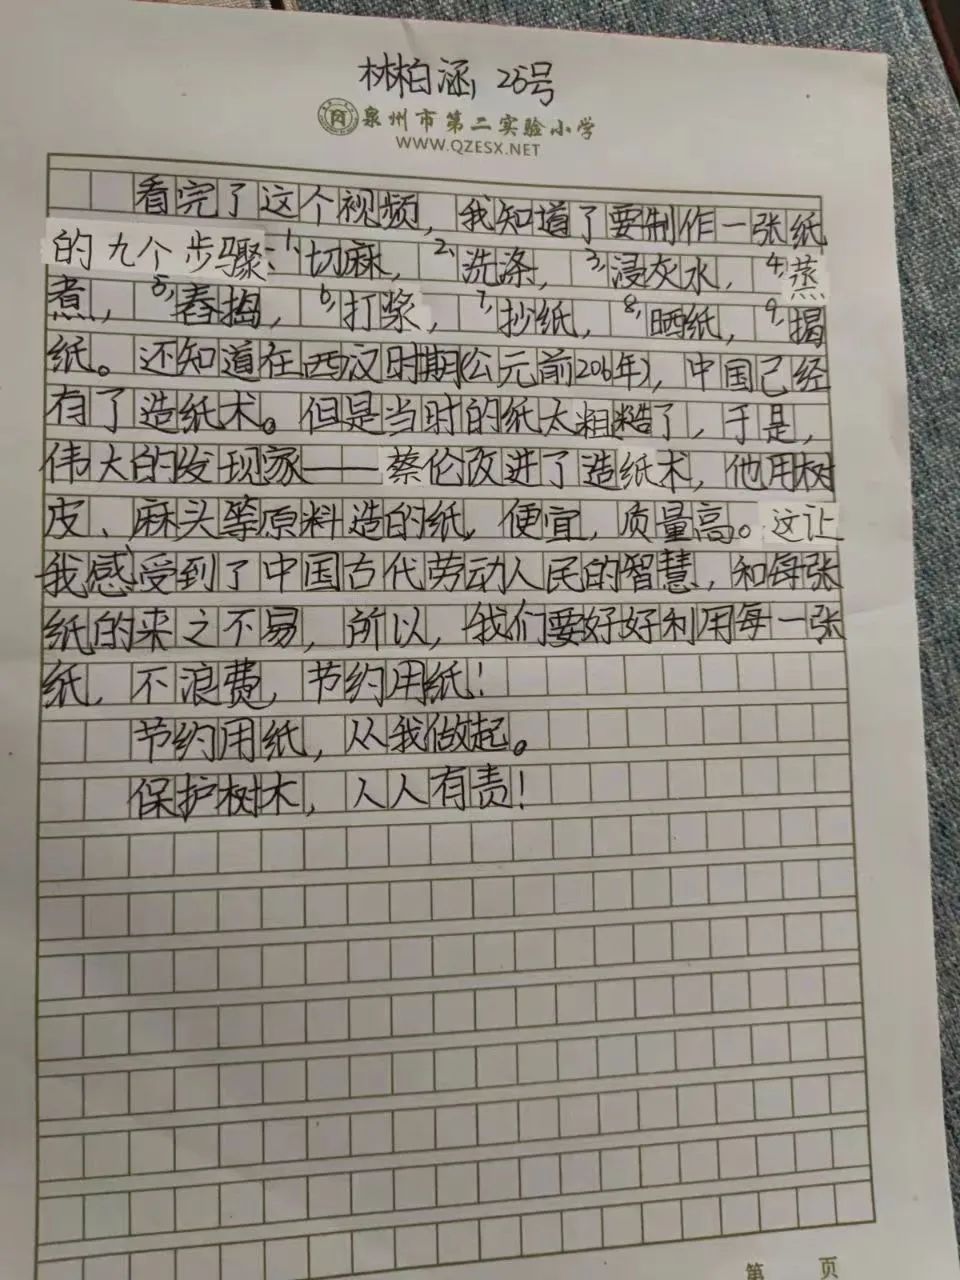 林柏涵, 26号
泉州市第二实验小学
WWW.QZESX.NET
看完了这个视频，我知道了要制作一张纸
的九个步骤：1、切麻，2、洗涤，3、浸灰水，4、蒸
煮，5、舂捣，6、打浆，7、抄纸，8、晒纸，9、揭
纸。还知道在西汉时期(公元前206年)，中国已经
有了造纸术。但是当时的纸太粗糙了，于是，
伟大的发现家——蔡伦改进了造纸术，他用树
皮、麻头等原料造的纸，便宜，质量高。这让
我感受到了中国古代劳动人民的智慧，和每张
纸的来之不易，所以，我们要好好利用每一张
纸，不浪费，节约用纸！
节约用纸，从我做起。
保护树木，人人有责！
第 页